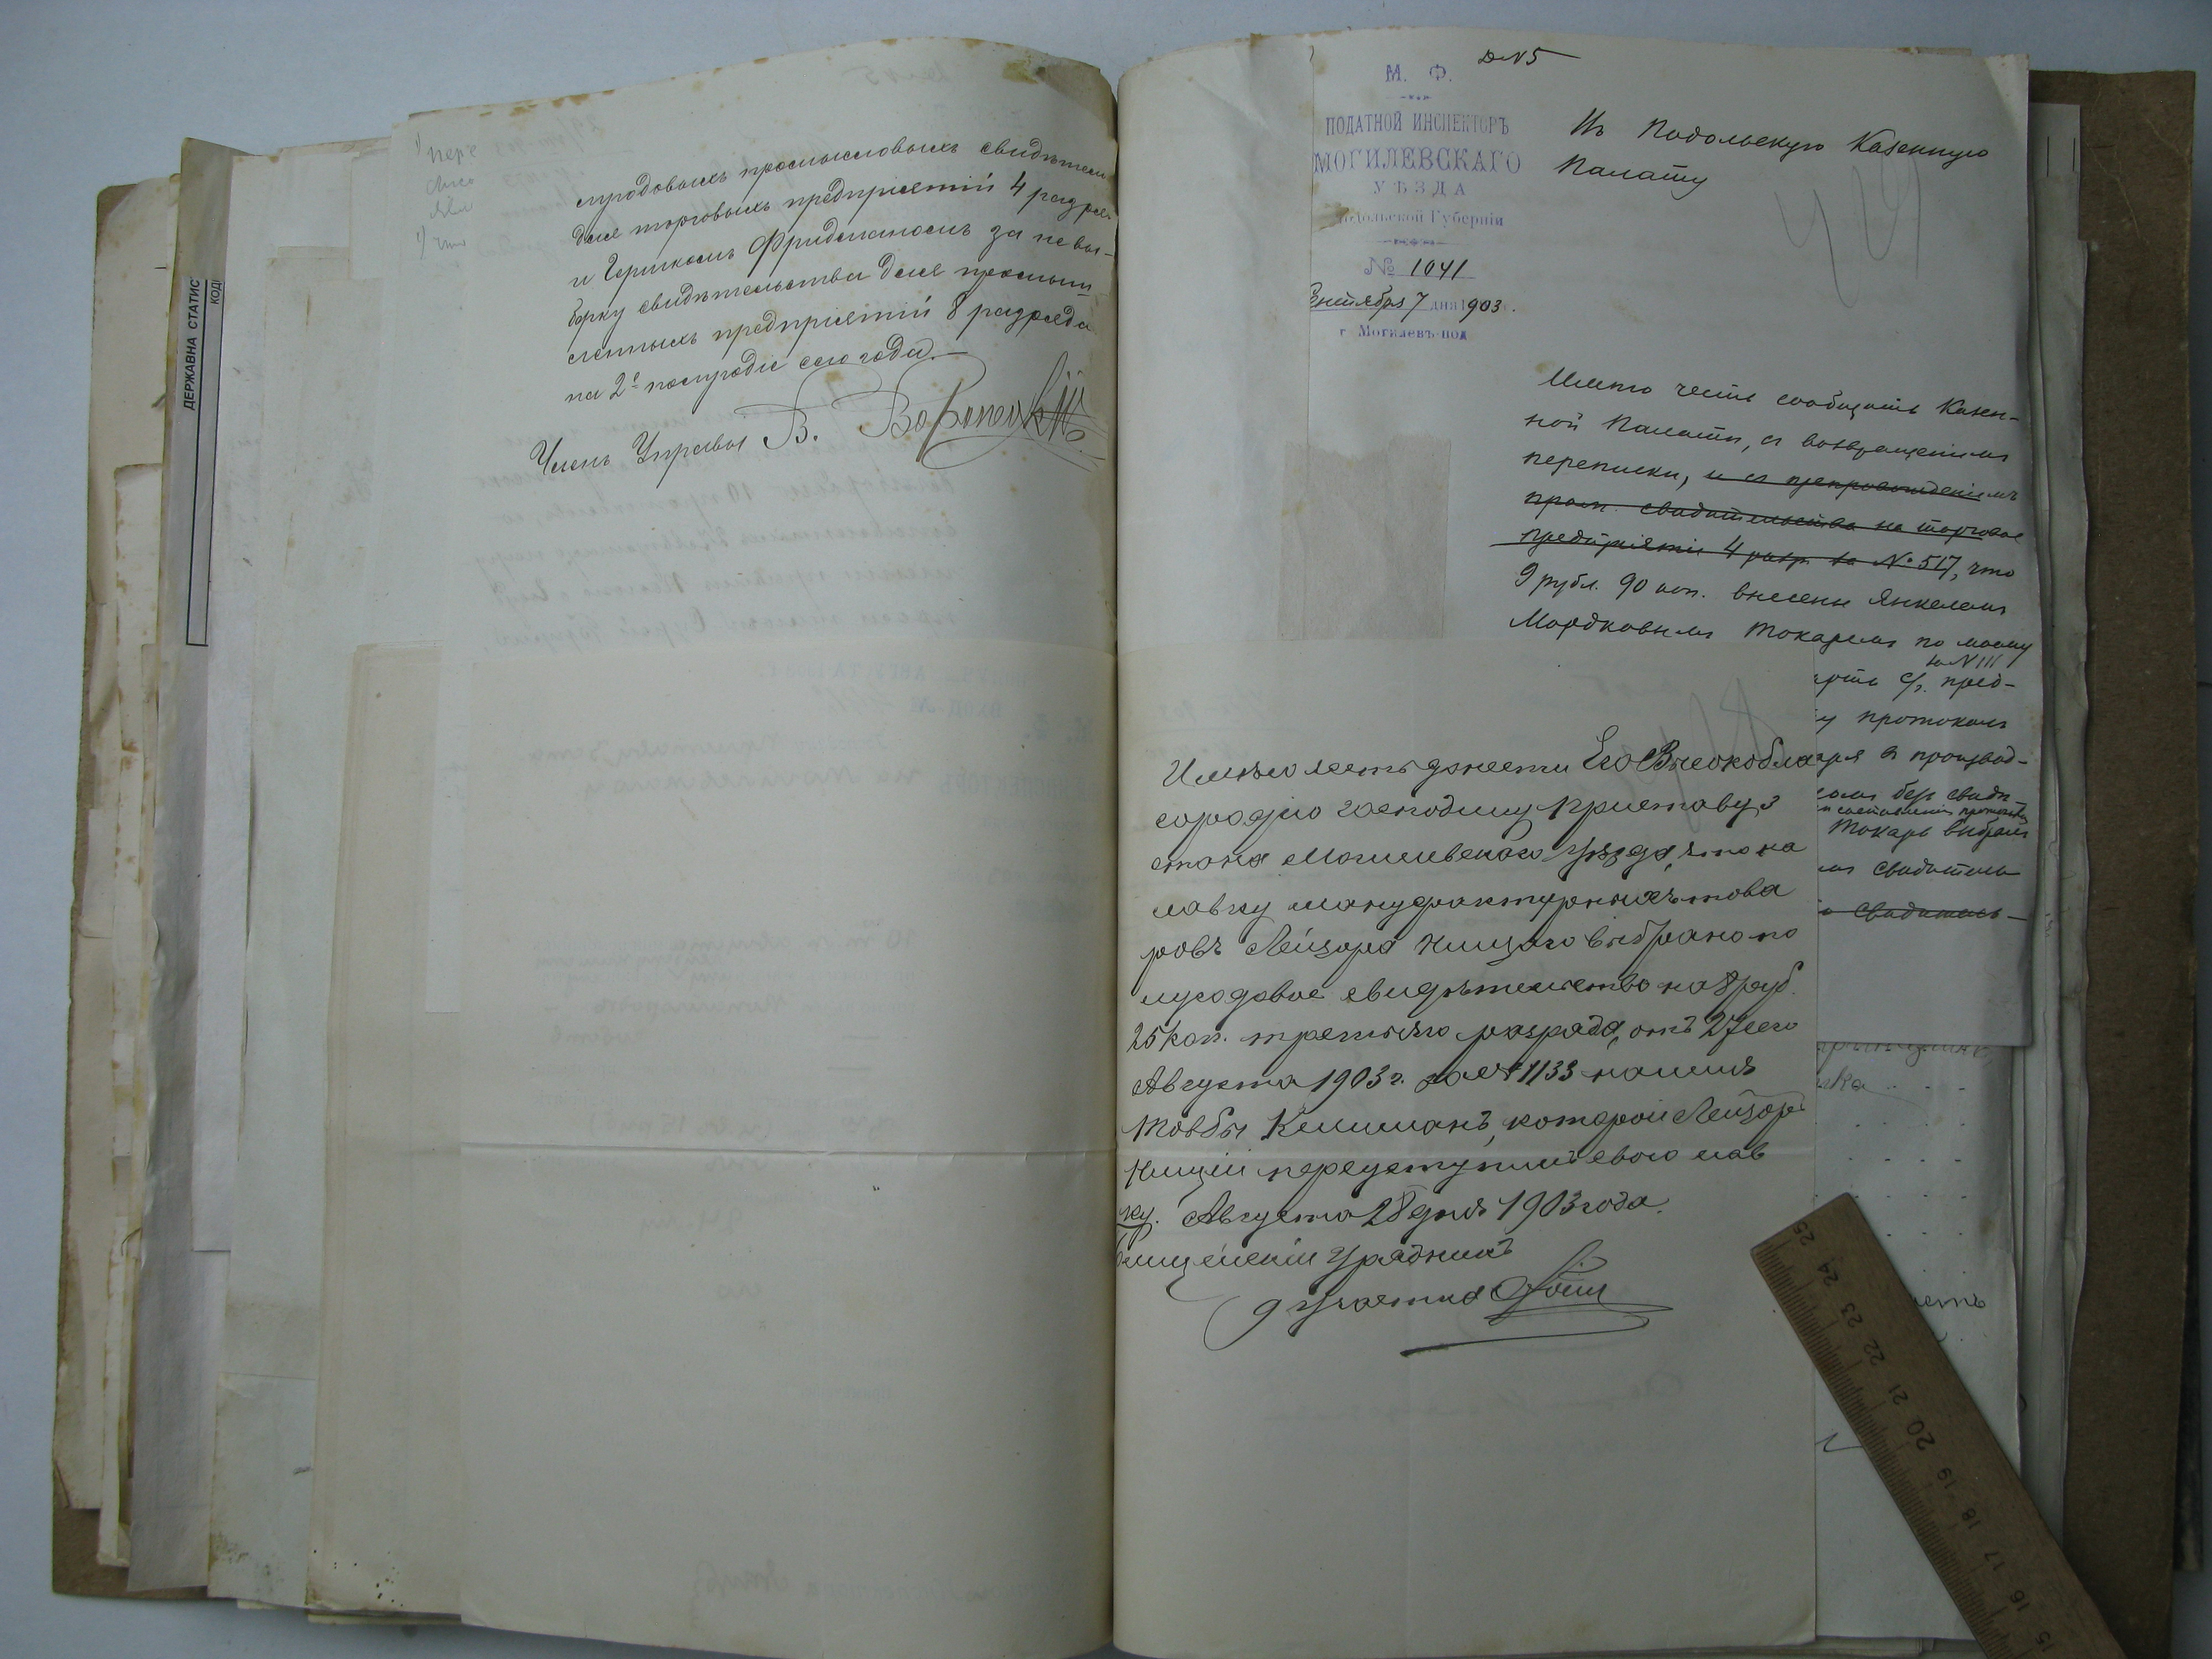 ДЕРЖАВНА СТАТИС
КОД
лугодовыхъ промысловыхъ свидѣтель
для торговыхъ предпріятій 4 разряд
и Гершкомъ Фридманомъ за невы-
борку свидѣтельства для промыш
ленныхъ предпріятій 8 разряда
на 2е полугодіе сего года.—
Членъ Управы В.
Д N5
М. Ф.
ПОДАТНОЙ ИНСПЕКТОРЪ
МОГИЛЕВСКАГО
УѢЗДА
Подольской Губерніи
№ 1041
Сентября 7 дня 1903 г.
г. Могилевъ-под
Въ Подольскую Казенную
Палату
Имѣю честь сообщить Казен-
ной Палатѣ, съ возвращеніемъ
переписки, и съ препровожденіемъ
пром. свидѣтельства на торговое
предпріятіе 4 разр. за № 517, что
9 рубл. 90 коп. внесены Янкелемъ
Мордковымъ Токаремъ по моему
за N 111
пред-
протоколъ
производ-
безъ свидѣ-
Токарь выбралъ
свидѣтель
свидѣтель-
Имѣю честь донести Его Высокобла
городію господину Приставу 3
стана Могилевскаго уѣзда, что на
лавку мануфактурныхъ това
ровъ Лейзора Нищаго выбрано по
лугодовое свидѣтельство на 8 руб.
25 коп. третьяго разряда, отъ 27 сего
Августа 1903 г. за № 1133 на имя
Товбы Клишманъ, которой Лейзоръ
Нищій переуступилъ свою лав
ку. Августа 28 дня 1903 года.
Полицейскій Урядникъ
9 участка
25 24 23 22 21 20 19 18 17 16 15